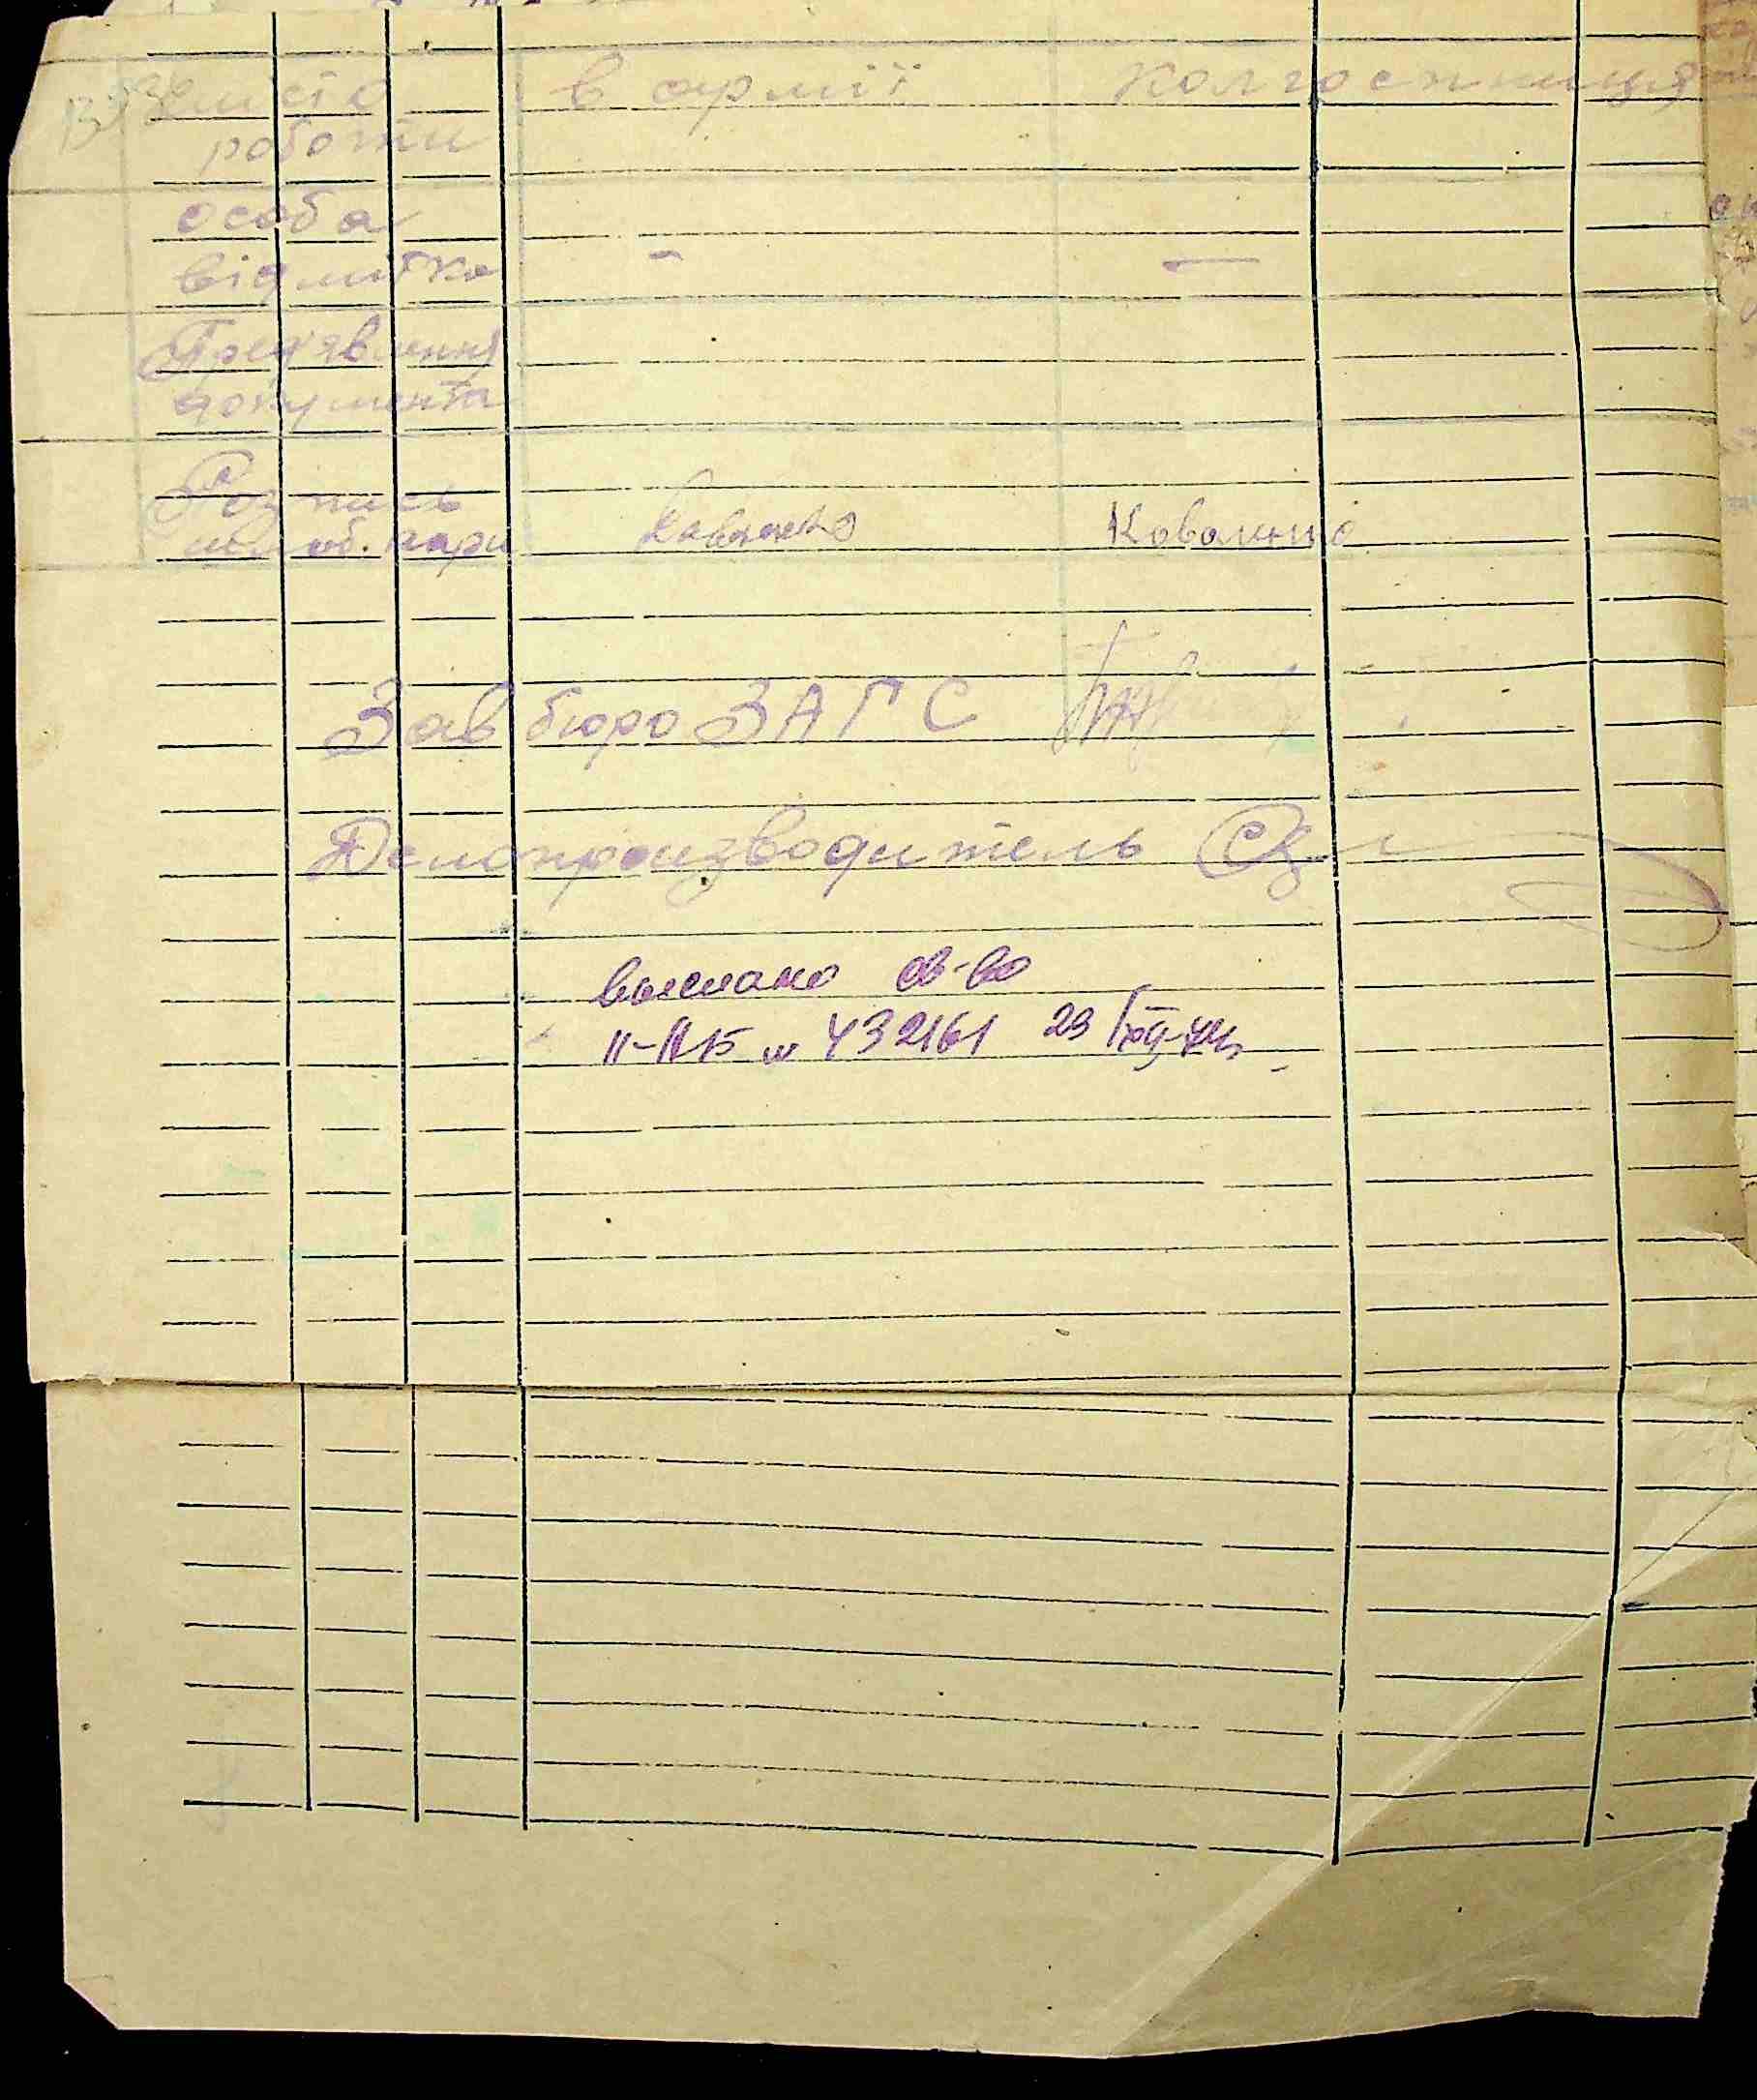 місто в армії колгоспниця
роботи
особа
відмітка - —
Пред'явлення
документа
Розпис
шлюб. пари Коваленко Коваленко
Зав бюро ЗАГС
Делопроизводитель
выслано св-во
II-ПБ № 432161 23